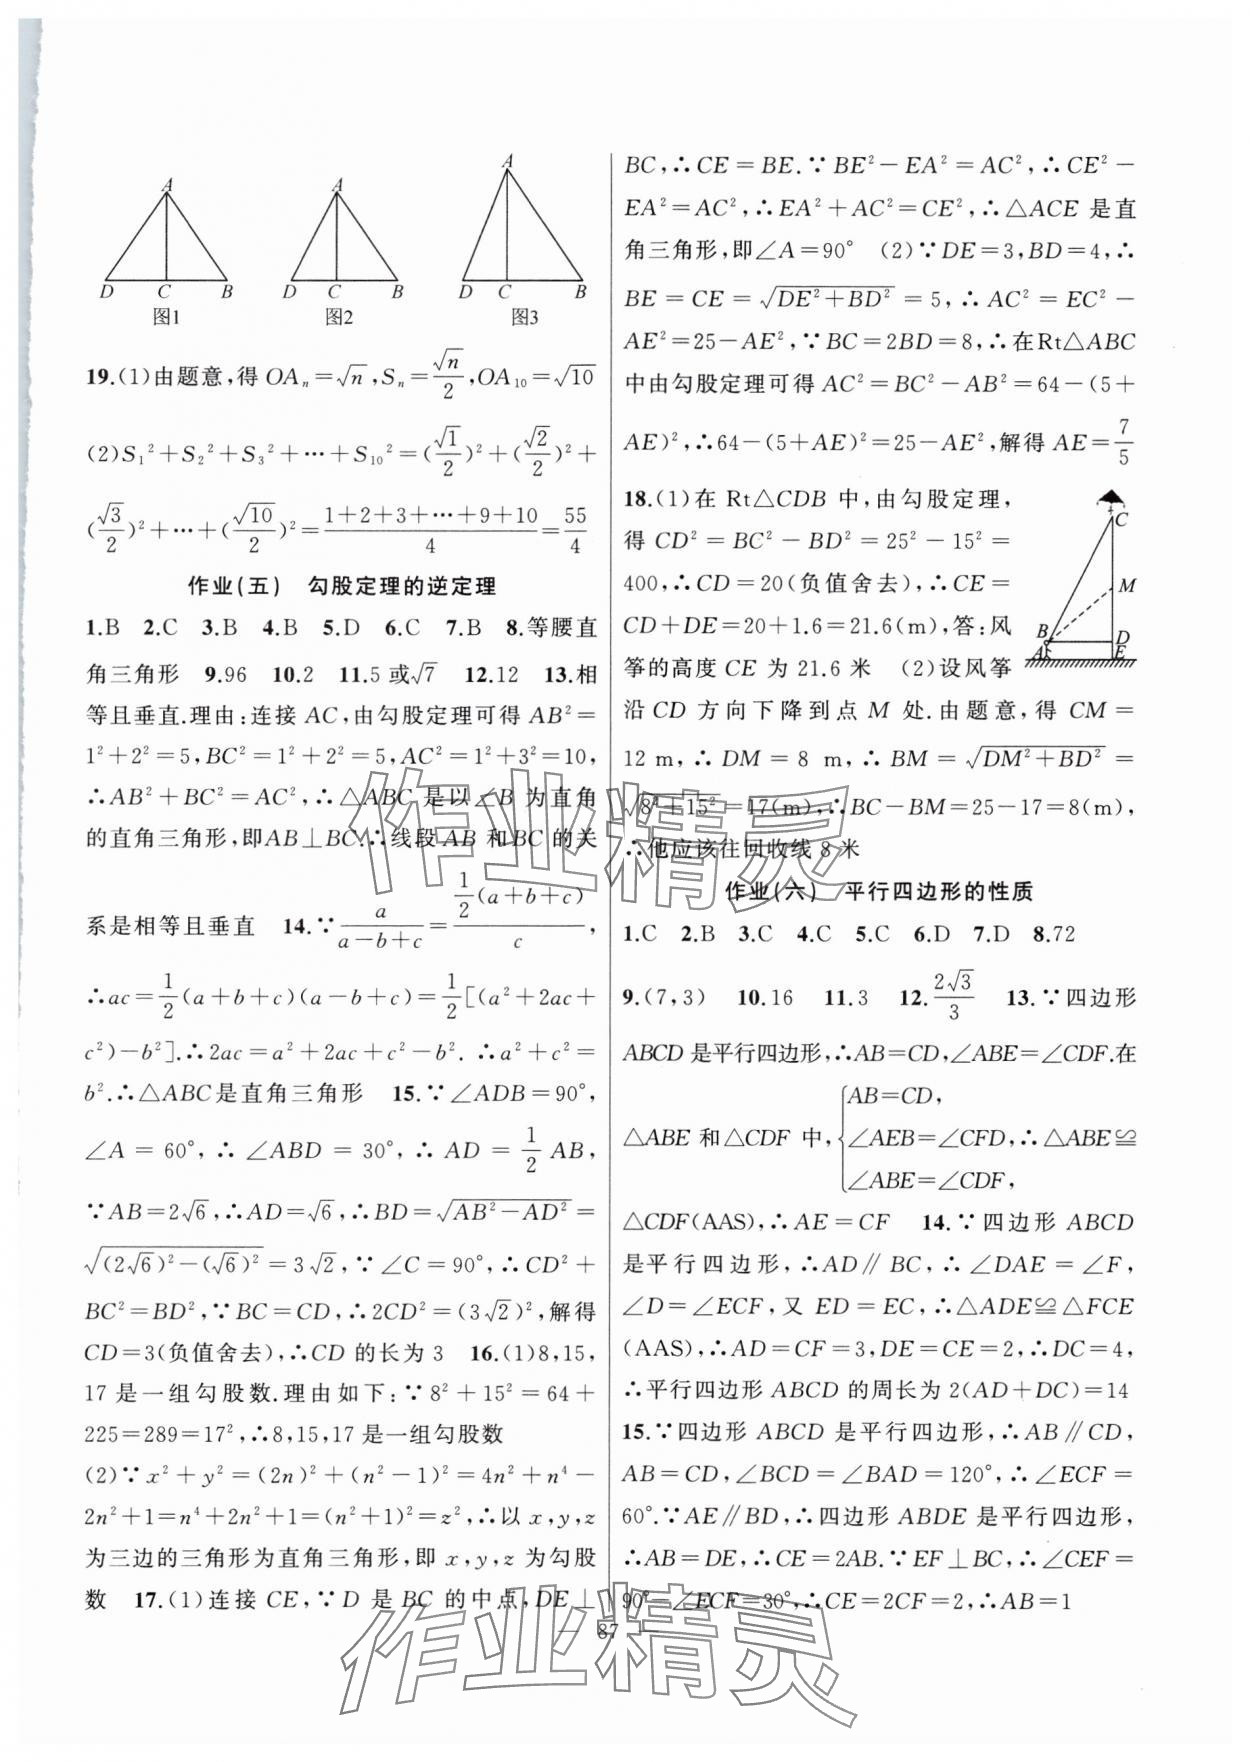 A
D C B
图1
A
D C B
图2
A
D C B
图3
19.(1)由题意,得OAₙ=√n,Sₙ=√n/2,OA₁₀=√10
(2)S₁²+S₂²+S₃²+⋯+S₁₀²=(√1/2)²+(√2/2)²+
(√3/2)²+⋯+(√10/2)²=(1+2+3+⋯+9+10)/4=55/4
作业(五) 勾股定理的逆定理
1.B 2.C 3.B 4.B 5.D 6.C 7.B 8.等腰直
角三角形 9.96 10.2 11.5或√7 12.12 13.相
等且垂直.理由:连接AC,由勾股定理可得AB²=
1²+2²=5,BC²=1²+2²=5,AC²=1²+3²=10,
∴AB²+BC²=AC²,∴△ABC是以∠B为直角
的直角三角形,即AB⊥BC.∴线段AB和BC的关
系是相等且垂直 14.∵a/(a-b+c)=½(a+b+c)/c,
∴ac=½(a+b+c)(a-b+c)=½[(a²+2ac+
c²)-b²].∴2ac=a²+2ac+c²-b². ∴a²+c²=
b².∴△ABC是直角三角形 15.∵∠ADB=90°,
∠A=60°,∴∠ABD=30°,∴AD=½AB,
∵AB=2√6,∴AD=√6,∴BD=√(AB²-AD²)=
√((2√6)²-(√6)²)=3√2,∵∠C=90°,∴CD²+
BC²=BD²,∵BC=CD,∴2CD²=(3√2)²,解得
CD=3(负值舍去),∴CD的长为3 16.(1)8,15,
17是一组勾股数.理由如下:∵8²+15²=64+
225=289=17²,∴8,15,17是一组勾股数
(2)∵x²+y²=(2n)²+(n²-1)²=4n²+n⁴-
2n²+1=n⁴+2n²+1=(n²+1)²=z²,∴以x,y,z
为三边的三角形为直角三角形,即x,y,z为勾股
数 17.(1)连接CE,∵D是BC的中点,DE⊥
BC,∴CE=BE.∵BE²-EA²=AC²,∴CE²-
EA²=AC²,∴EA²+AC²=CE²,∴△ACE是直
角三角形,即∠A=90° (2)∵DE=3,BD=4,∴
BE=CE=√(DE²+BD²)=5,∴AC²=EC²-
AE²=25-AE²,∵BC=2BD=8,∴在Rt△ABC
中由勾股定理可得AC²=BC²-AB²=64-(5+
AE)²,∴64-(5+AE)²=25-AE²,解得AE=7/5
18.(1)在Rt△CDB中,由勾股定理,
得CD²=BC²-BD²=25²-15²=
400,∴CD=20(负值舍去),∴CE=
CD+DE=20+1.6=21.6(m),答:风
筝的高度CE为21.6米 (2)设风筝
C
M
B
D
A
E
沿CD方向下降到点M处.由题意,得CM=
12 m,∴DM=8 m,∴BM=√(DM²+BD²)=
√(8²+15²)=17(m),∴BC-BM=25-17=8(m),
∴他应该往回收线8米
作业(六) 平行四边形的性质
1.C 2.B 3.C 4.C 5.C 6.D 7.D 8.72
9.(7,3) 10.16 11.3 12.2√3/3 13.∵四边形
ABCD是平行四边形,∴AB=CD,∠ABE=∠CDF.在
△ABE和△CDF中,{AB=CD,
∠AEB=∠CFD,∴△ABE≌
∠ABE=∠CDF,
△CDF(AAS),∴AE=CF 14.∵四边形ABCD
是平行四边形,∴AD∥BC,∴∠DAE=∠F,
∠D=∠ECF,又ED=EC,∴△ADE≌△FCE
(AAS),∴AD=CF=3,DE=CE=2,∴DC=4,
∴平行四边形ABCD的周长为2(AD+DC)=14
15.∵四边形ABCD是平行四边形,∴AB∥CD,
AB=CD,∠BCD=∠BAD=120°,∴∠ECF=
60°.∵AE∥BD,∴四边形ABDE是平行四边形,
∴AB=DE,∴CE=2AB.∵EF⊥BC,∴∠CEF=
90°-∠ECF=30°,∴CE=2CF=2,∴AB=1
— 87 —
作业精灵
作业精灵